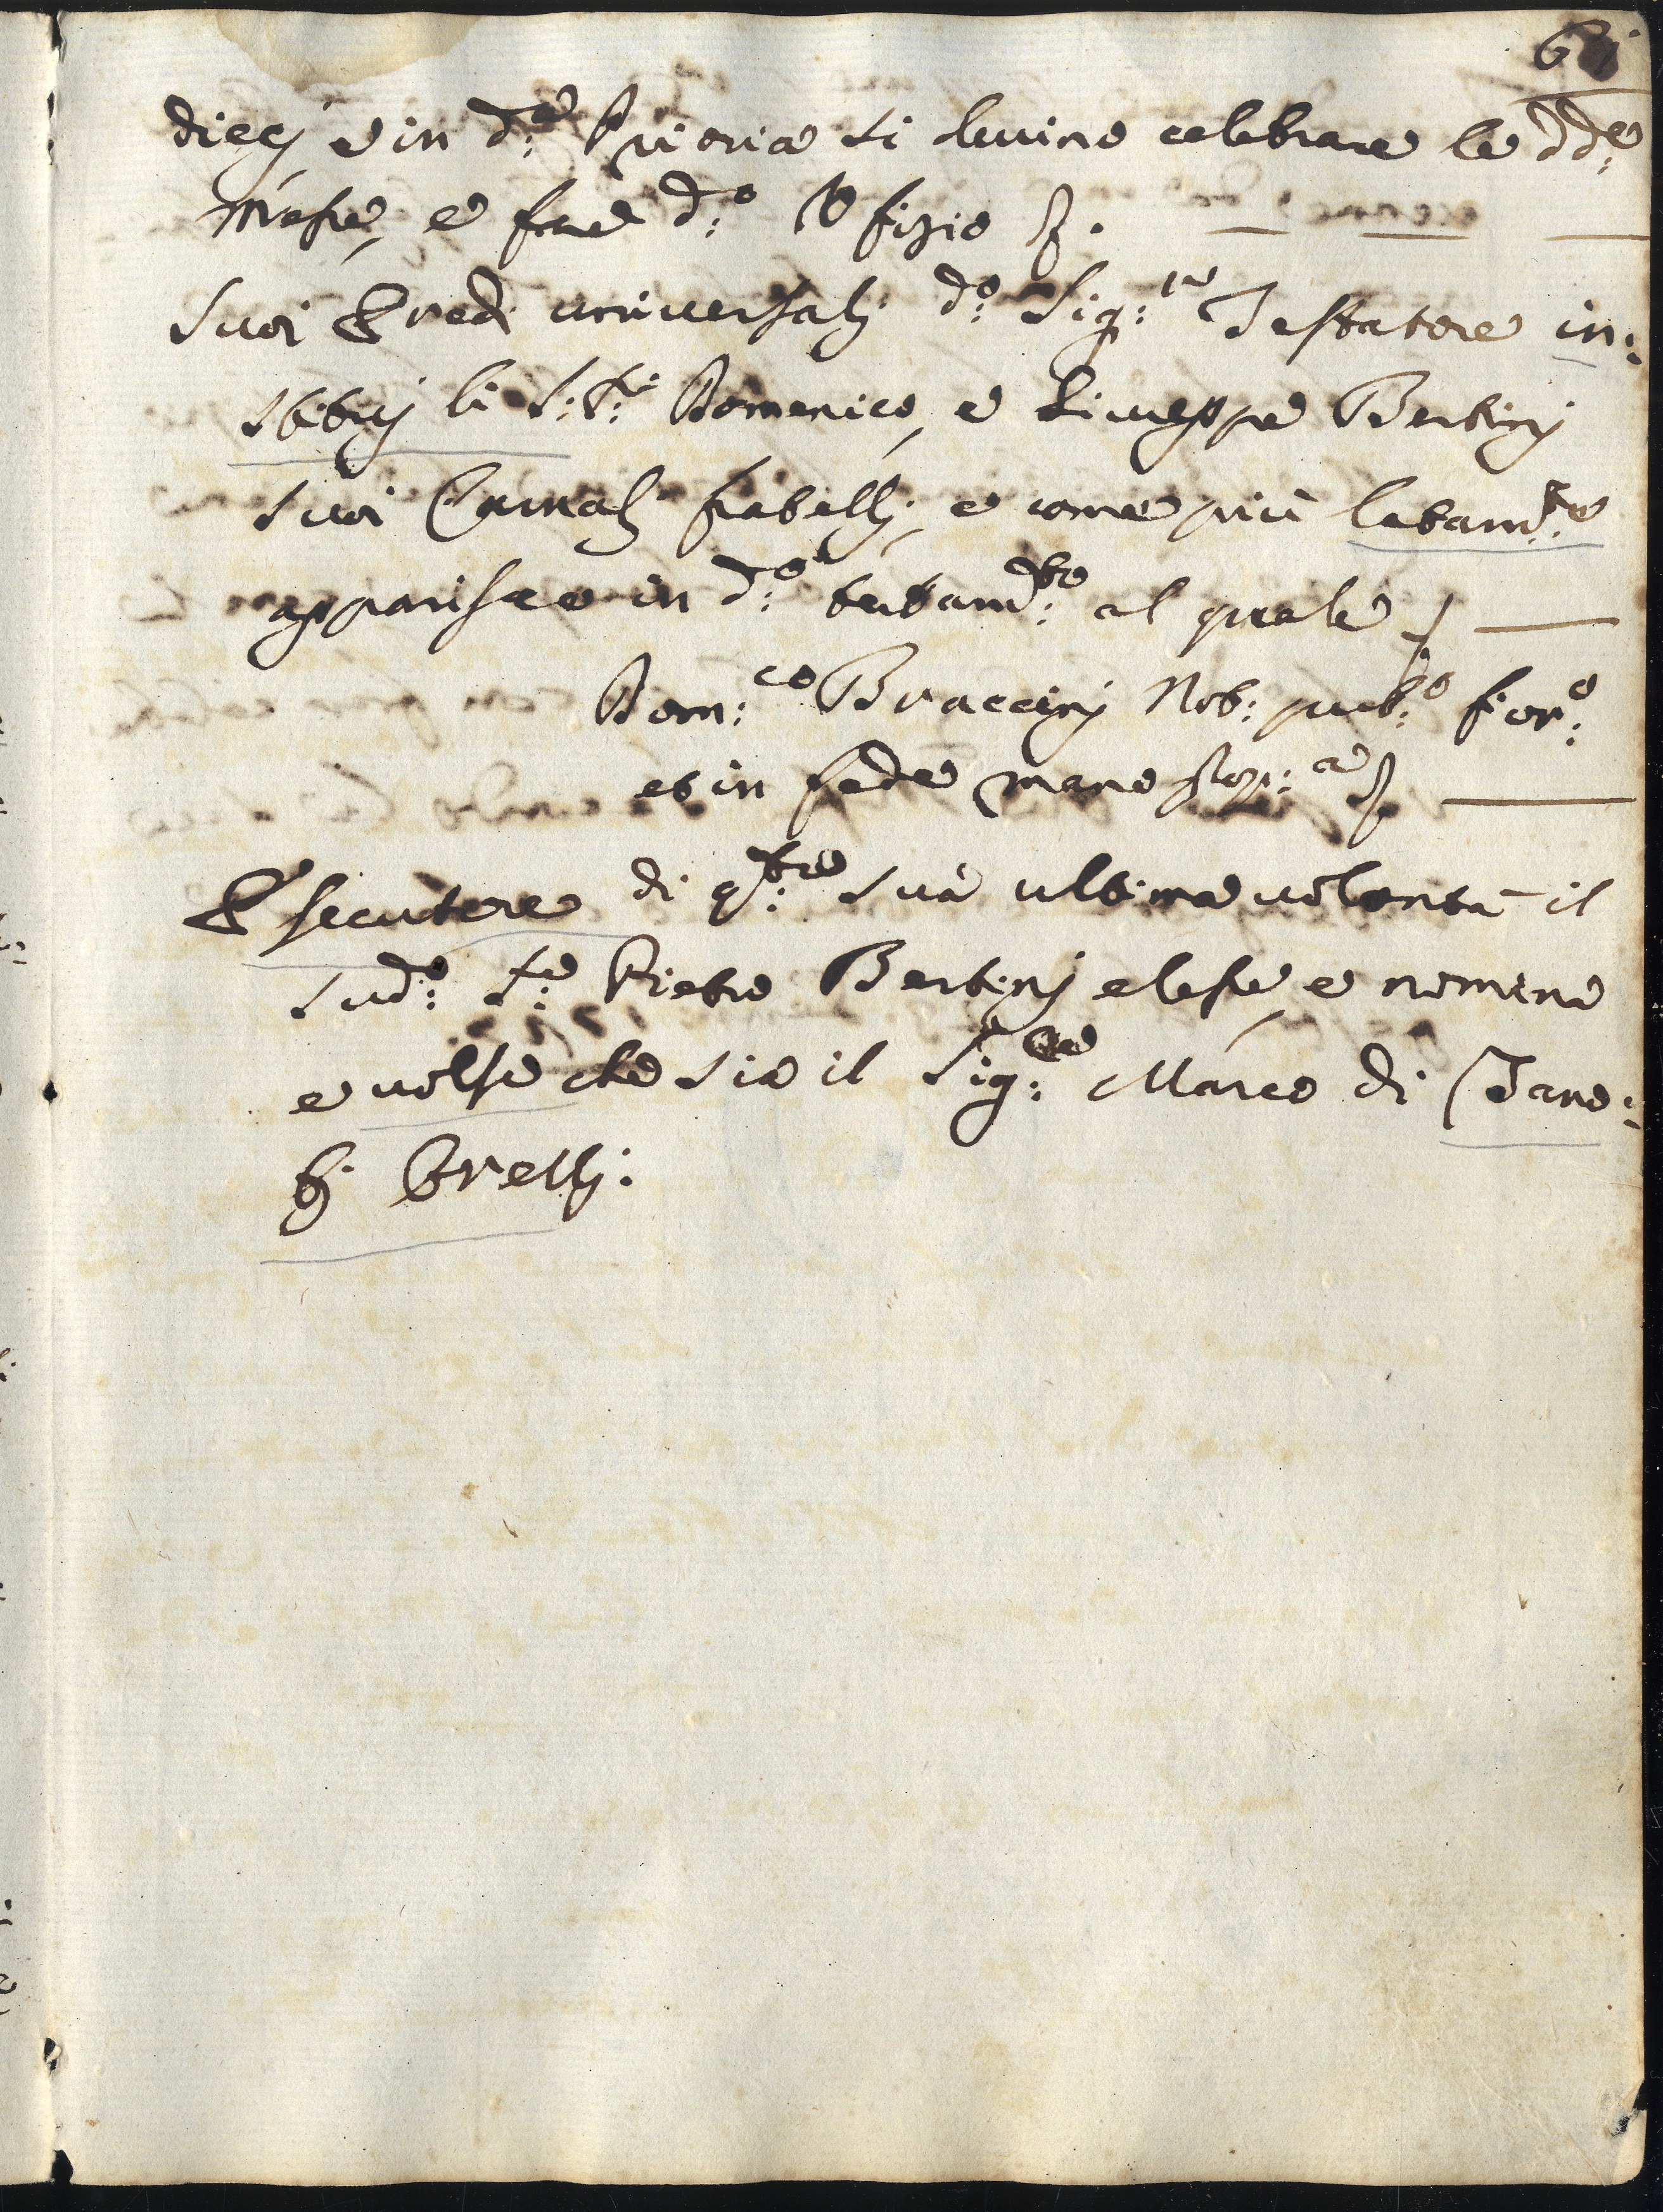 diecj e in d:ª Prioria si devino celebrare le dd:e
Messe, e fare d:º Ofizio &.
Suoi Eredi universalj d:º Sig:re Testatore in:
stituj li S:ri Domenico, e Giuseppe Bertinj
suoi Carnalj fratellj, e come più latam:te
apparisce in d:º testam:to al quale &
Dom:co Braccinj Not: pub:º fior:º
et in fede mano prop:a &
Esecutore di q:ta sua ultima volontà il
sud:º S:re Pietro Bertinj elesse, e nominò
e volse che sia il Sig:re Marco di Zano:
bj Orellj.